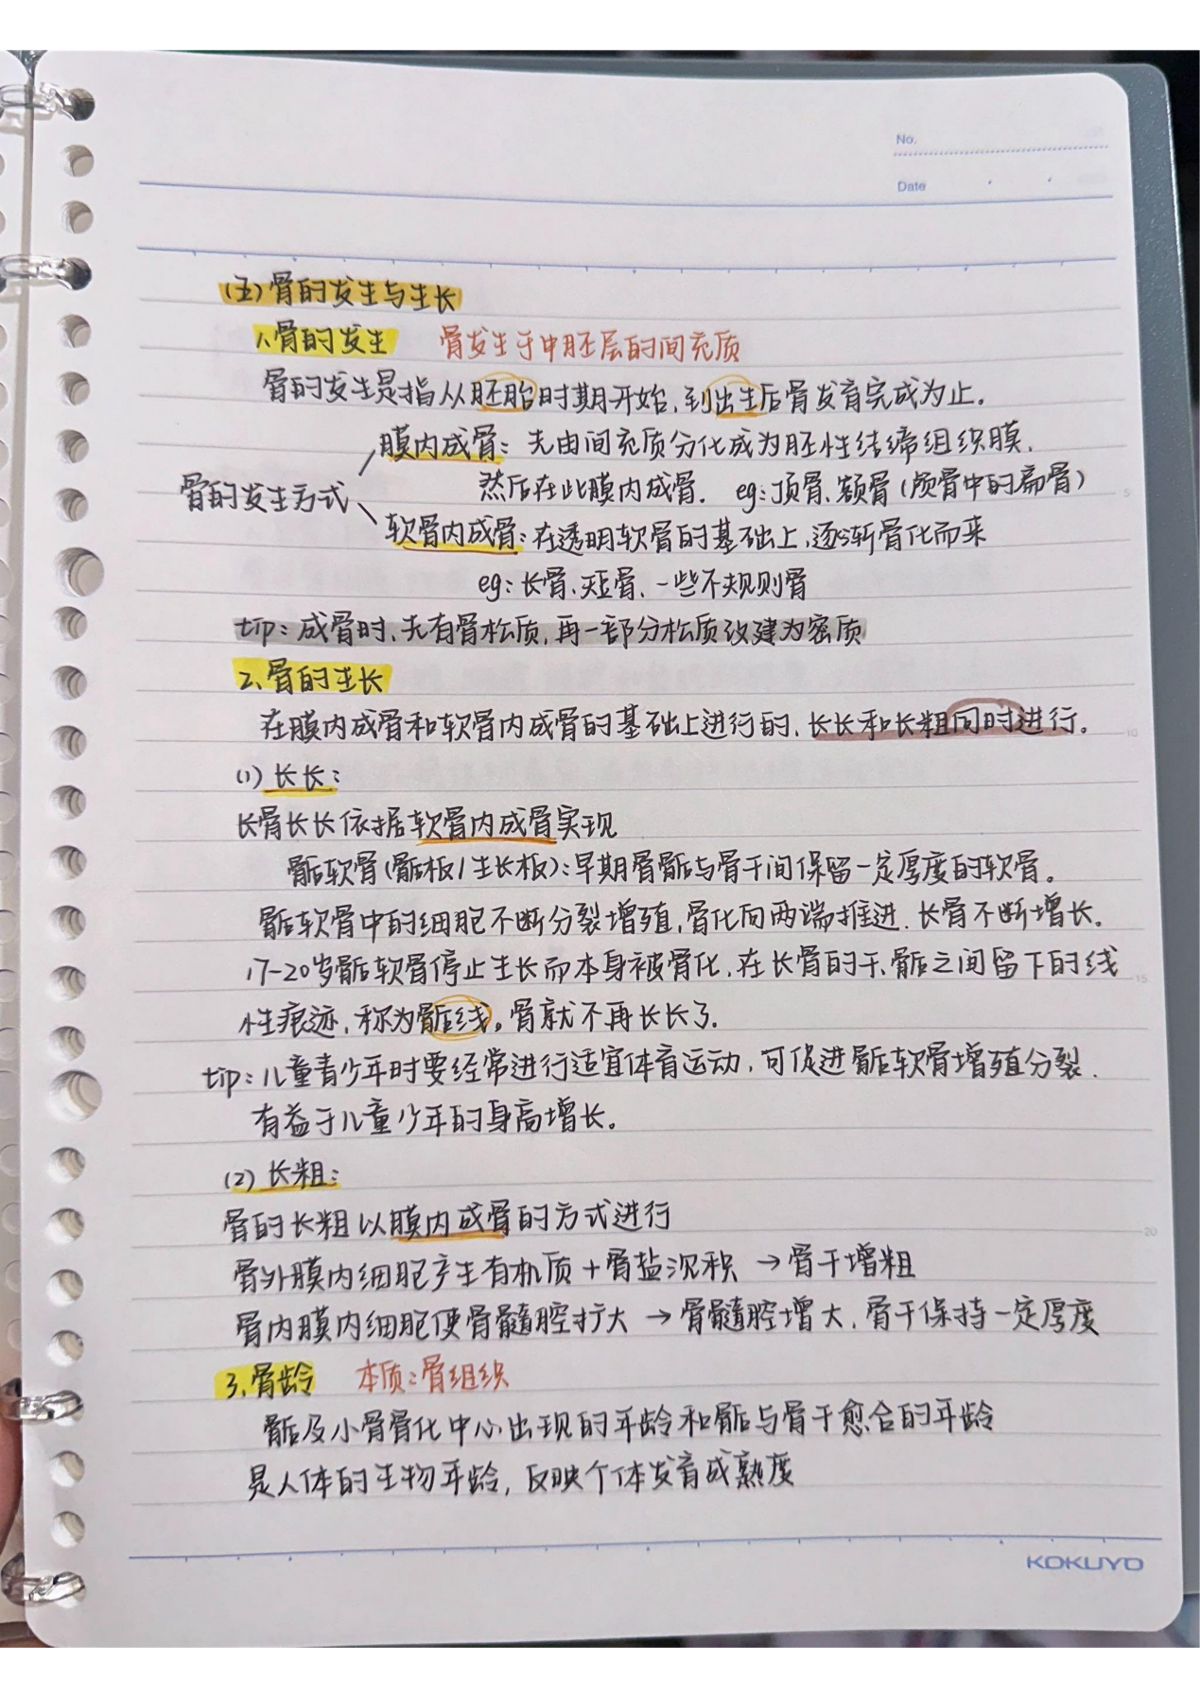 No.
Date
(五)骨的发生与生长
1、骨的发生 骨发生于中胚层的间充质
骨的发生是指从胚胎时期开始,到出生后骨发育完成为止。
膜内成骨: 先由间充质分化成为胚性结缔组织膜,
然后在此膜内成骨. eg:顶骨、额骨(颅骨中的扁骨)
骨的发生方式
软骨内成骨:在透明软骨的基础上,逐渐骨化而来
eg:长骨、短骨、一些不规则骨
tip:成骨时、先有骨松质,再一部分松质改建为密质
2、骨的生长
在膜内成骨和软骨内成骨的基础上进行的、长长和长粗同时进行。
(1) 长长:
长骨长长依据软骨内成骨实现
骺软骨(骺板/生长板):早期骨骺与骨干间保留一定厚度的软骨。
骺软骨中的细胞不断分裂增殖,骨化向两端推进.长骨不断增长.
17-20岁骺软骨停止生长而本身被骨化,在长骨的干、骺之间留下的线
性痕迹,称为骺线。骨就不再长长了.
tip:儿童青少年时要经常进行适宜体育运动,可促进骺软骨增殖分裂.
有益于儿童少年的身高增长。
(2) 长粗:
骨的长粗以膜内成骨的方式进行
骨外膜内细胞产生有机质+骨盐沉积 → 骨干增粗
骨内膜内细胞使骨髓腔扩大 → 骨髓腔增大,骨干保持一定厚度
3、骨龄 本质:骨组织
骺及小骨骨化中心出现的年龄和骺与骨干愈合的年龄
是人体的生物年龄,反映个体发育成熟度
5
10
15
20
KOKUYO